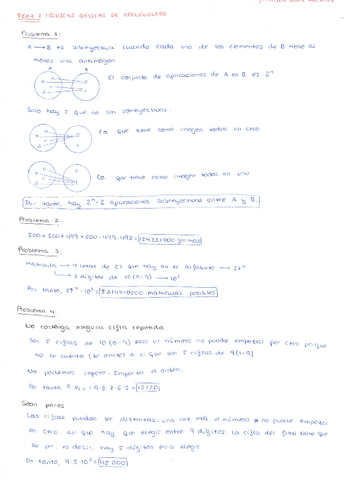 TEMA 2 TÉCNICAS BÁSICAS DE RECUENTO
Problema 1:
A → B es sobreyectiva cuando cada uno de los elementos de B tiene al
menos una antiimagen
A B
El conjunto de aplicaciones de A en B es 2ⁿ
Solo hay 2 que no son sobreyectivas:
La que tiene como imagen todos en cero
La que tiene como imagen todos en uno
Por tanto, hay 2ⁿ-2 aplicaciones sobreyectivas entre A y B.
Problema 2
Problema 3
Matrícula → 4 letras de 27 que hay en el alfabeto → 27⁴
→ 3 dígitos de 10 (0-9) → 10³
Por tanto, 27⁴ · 10³ = matrículas posibles
Problema 4:
No contenga ninguna cifra repetida
Son 5 cifras de 10 (0-9) pero el número no puede empezar por cero porque
no se cuenta (se omite) A si que son 5 cifras de 9 (1-9)
No podemos repetir. Importa el orden.
Por tanto,
Sean pares
Las cifras pueden ser distintas, una vez más el número no puede empezar
en cero, así que hay que elegir entre 9 dígitos. La cifra del final tiene que
ser par, es decir, hay 5 dígitos para elegir
Por tanto, 9·5·10³ = 45000